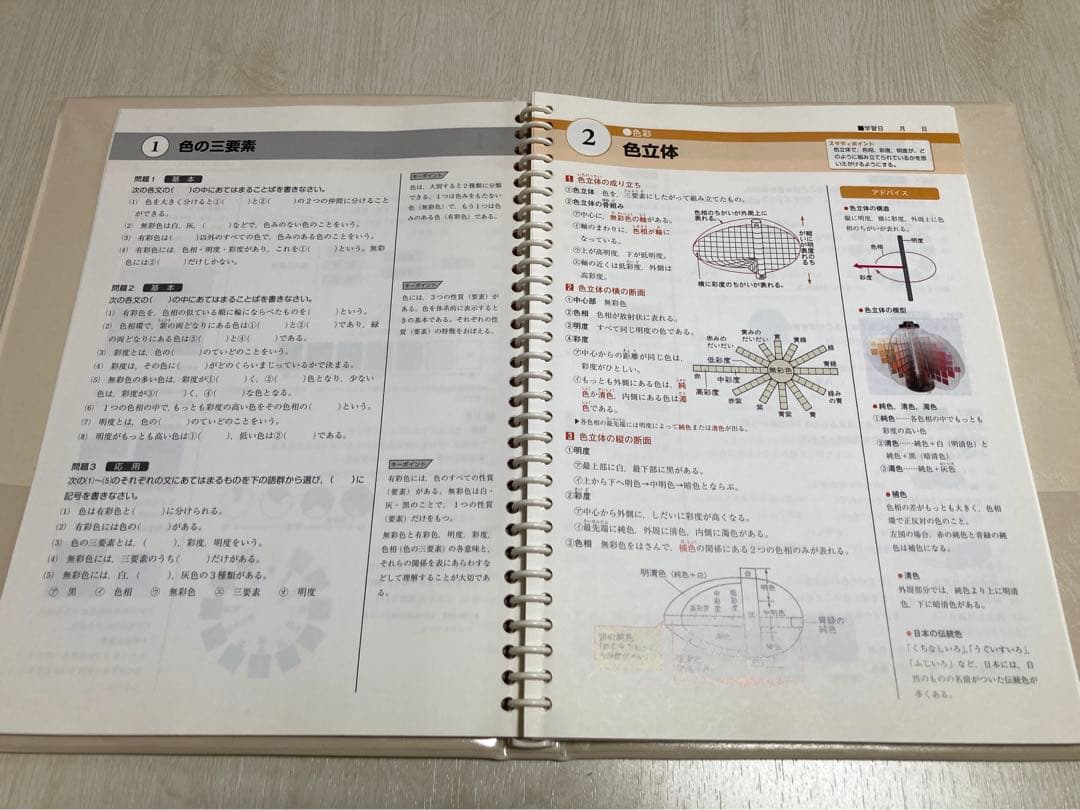 1 色の三要素
問題1 基本
次の各文の( )の中にあてはまることばを書きなさい。
(1) 色を大きく分けると①( )と②( )の2つの仲間に分けること
ができる。
(2) 無彩色は白,灰,( )などで,色みのない色のことをいう。
(3) 有彩色は( )以外のすべての色で,色みのある色のことをいう。
(4) 有彩色には,色相・明度・彩度があり,これを①( )という。無彩
色には②( )だけしかない。
キーポイント
色は,大別すると2種類に分類
できる。1つは色みをもたない
色(無彩色)で,もう1つは色
みのある色(有彩色)である。
問題2 基本
次の各文の( )の中にあてはまることばを書きなさい。
(1) 有彩色を,色相の似ている順に輪にならべたものを( )という。
(2) 色相環で,紫の両どなりにある色は①( )と②( )であり,緑
の両どなりにある色は③( )と④( )である。
(3) 彩度とは,色の( )のていどのことをいう。
(4) 彩度は,その色に( )がどのくらいまじっているかで決まる。
(5) 無彩色の多い色は,彩度が①( )く,②( )色となり,少ない
色は,彩度が③( )く,④( )な色となる。
(6) 1つの色相の中で,もっとも彩度の高い色をその色相の( )という。
(7) 明度とは,色の( )のていどのことをいう。
(8) 明度がもっとも高い色は( ),低い色は( )である。
キーポイント
色には,3つの性質(要素)が
ある。色を体系的に表示すると
きの基本である。それぞれの性
質(要素)の特徴をおぼえる。
問題3 応用
次の(1)~(5)のそれぞれの文にあてはまるものを下の語群から選び,( )に
記号を書きなさい。
(1) 色は有彩色と( )に分けられる。
(2) 有彩色には色の( )がある。
(3) 色の三要素とは,( ),彩度,明度をいう。
(4) 無彩色には,三要素のうち( )だけがある。
(5) 無彩色には,白,( ),灰色の3種類がある。
㋐ 黒 ㋑ 色相 ㋒ 無彩色 ㋓ 三要素 ㋔ 明度
キーポイント
有彩色には,色のすべての性質
(要素)がある。無彩色は白・
灰・黒のことで,1つの性質
(要素)だけをもつ。
無彩色と有彩色,明度,彩度,
色相(色の三要素)の各意味と,
それらの関係を表にあらわすな
どして理解することが大切であ
る。
2 ●色彩
色立体
■学習日 月 日
スタディポイント
色立体で,色相,彩度,明度が,ど
のように組み立てられているかを思
いえがけるようにする。
1 色立体の成り立ち
①色立体 色を,三要素にしたがって組み立てたもの。
②色立体の骨組み
㋐中心に,無彩色の軸がある。
㋑軸のまわりに,色相が輪に
なっている。
㋒上が高明度,下が低明度。
㋓軸の近くは低彩度,外側は
高彩度。
色相のちがいが外周上に
表れる。
縦に明度のちがいが表れる
横に彩度のちがいが表れる。
2 色立体の横の断面
①中心部 無彩色
②色相 色相が放射状に表れる。
③明度 すべて同じ明度の色である。
④彩度
㋐中心からの距離が同じ色は,
彩度がひとしい。
㋑もっとも外側にある色は,純
色か清色,内側にある色は濁
色である。
▶各色相の最先端には明度によって純色または清色が出る。
黄みのだいだい
黄
黄緑
赤みのだいだい
低彩度
赤
中彩度
高彩度
無彩色
赤紫
紫
青紫
青
緑みの青
青緑
緑
3 色立体の縦の断面
①明度
㋐最上部に白,最下部に黒がある。
㋑上から下へ明色→中明色→暗色とならぶ。
②彩度
㋐中心から外側に,しだいに彩度が高くなる。
㋑最先端に純色,外周に清色,内側に濁色がある。
③色相 無彩色をはさんで,補色の関係にある2つの色相のみが表れる。
明清色(純色+白)
白
明色
高彩度
中彩度
低彩度
灰
中明色
濁色
暗色
青緑の
純色
アドバイス
●色立体の構造
縦に明度,横に彩度,外周上に色
相のちがいが表れる。
明度
色相
彩度
●色立体の模型
●純色,清色,濁色
①純色……各色相の中でもっとも
彩度の高い色
②清色……純色+白(明清色)と
純色+黒(暗清色)
③濁色……純色+灰色
●補色
色相の差がもっとも大きく,色相
環で正反対の色のこと。
左図の場合,赤の純色と青緑の純
色は補色になる。
●清色
外周部分では,純色より上に明清
色,下に暗清色がある。
●日本の伝統色
「くちなしいろ」「うぐいすいろ」
「ふじいろ」など,日本には,自
然のものの名前がついた伝統色が
多くある。